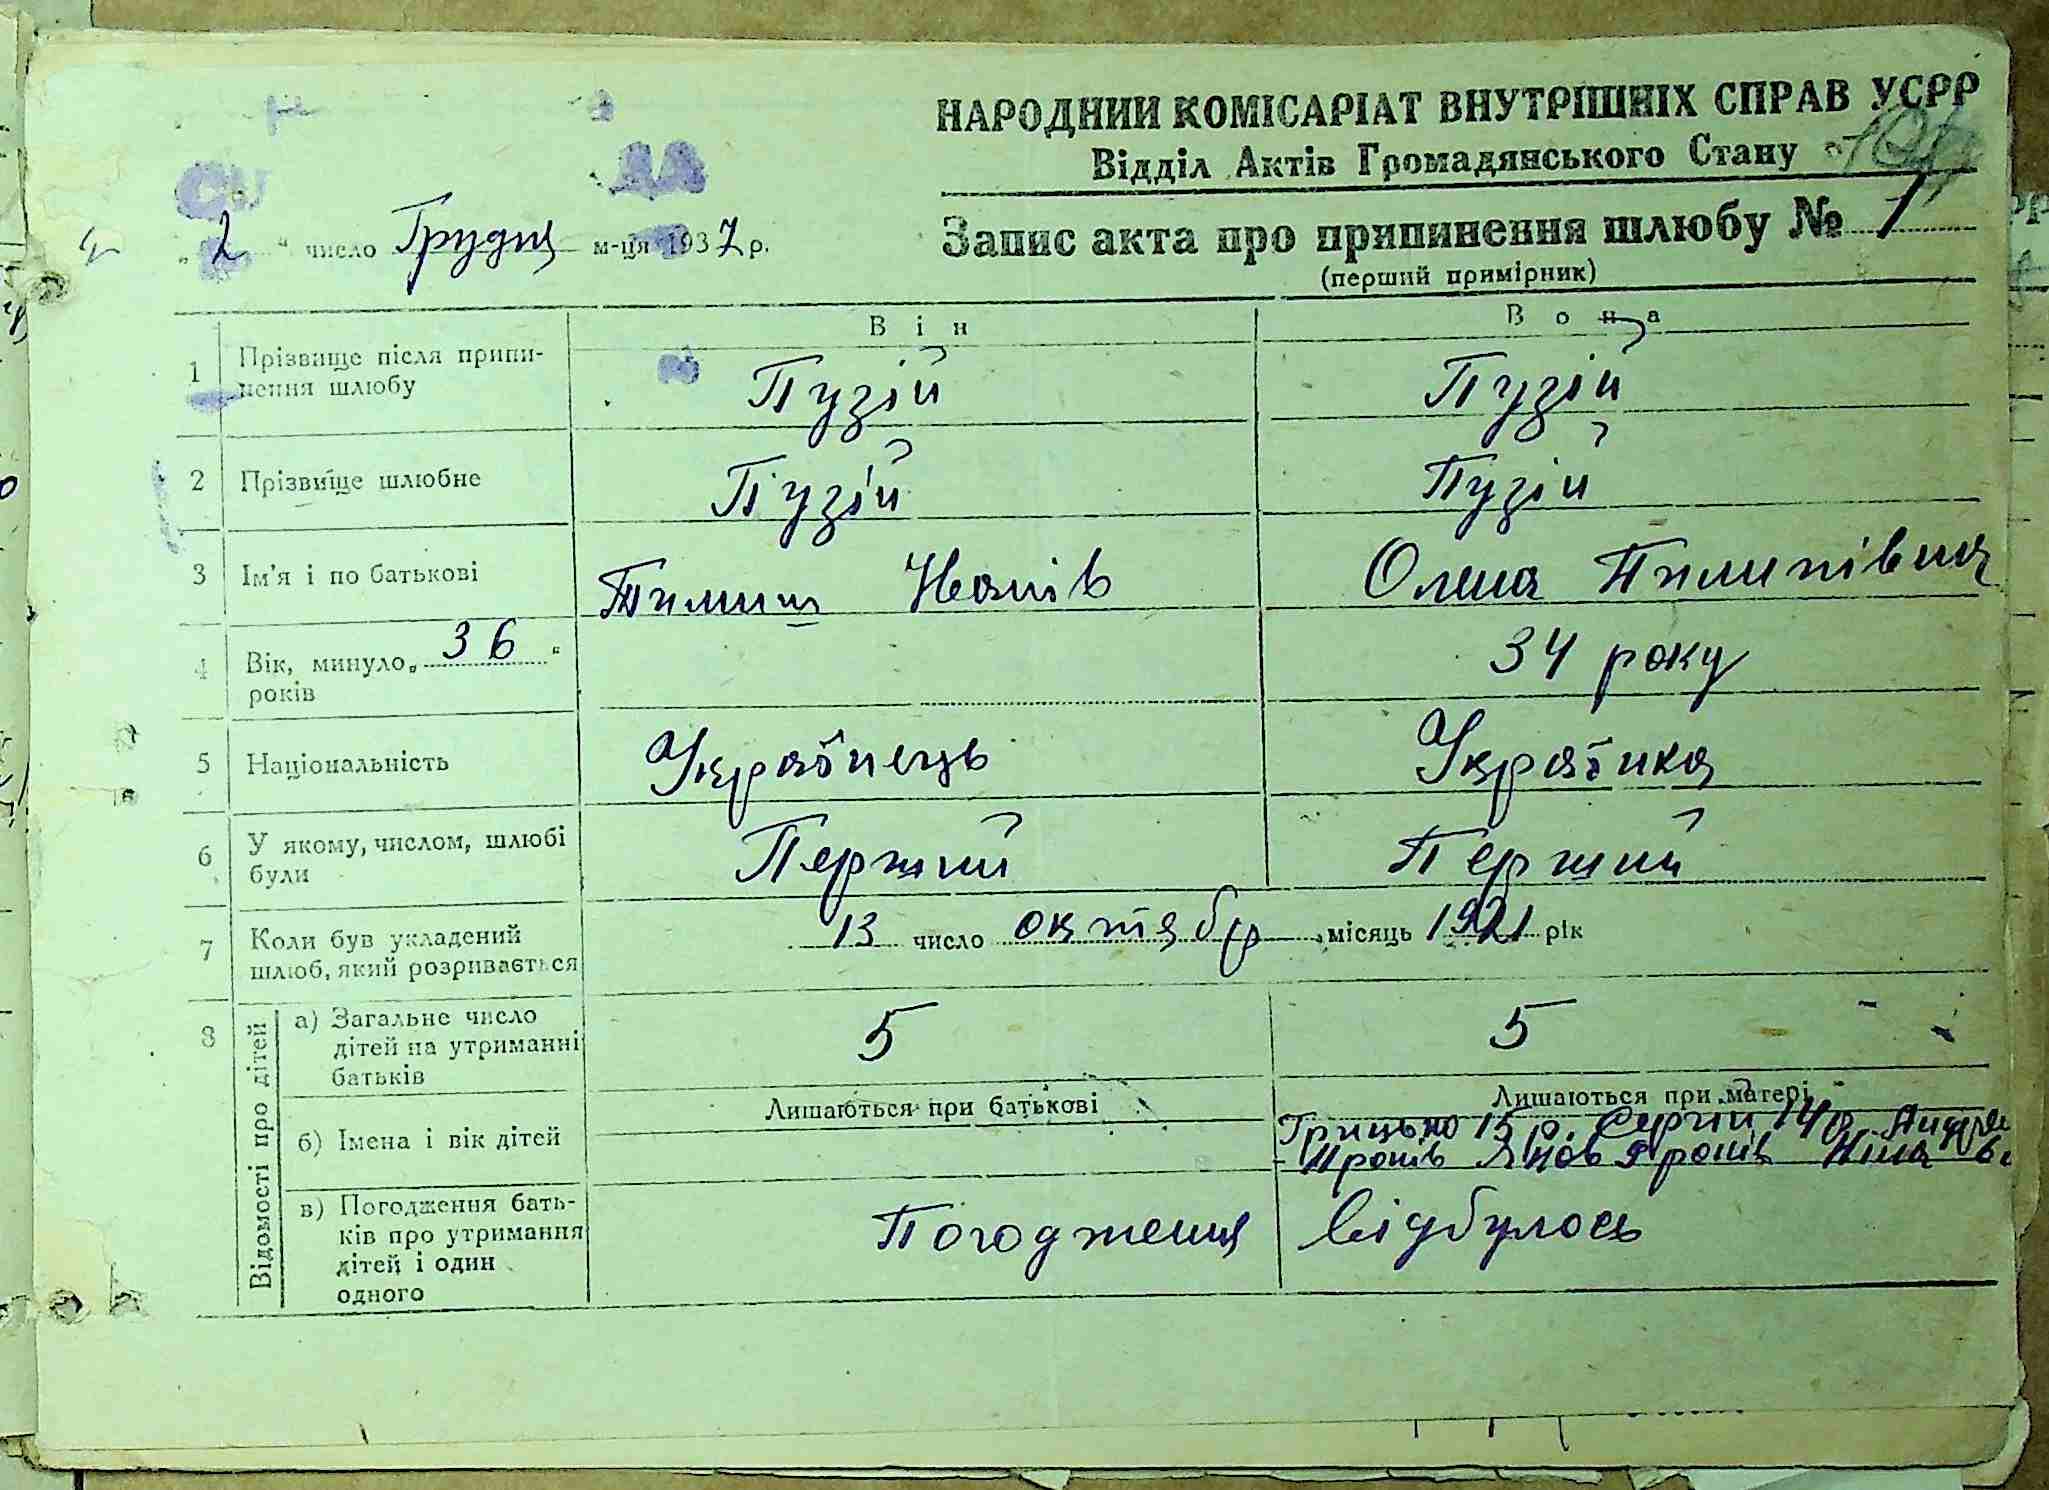 НАРОДНИЙ КОМІСАРІАТ ВНУТРІШНІХ СПРАВ УСРР
Відділ Актів Громадянського Стану
Запис акта про припинення шлюбу № 1
(перший примірник)
"2" число Грудня м-ця 1937 р.
Він Вона
1 Прізвище після припи-
нення шлюбу Пузій Пузій
2 Прізвище шлюбне Пузій Пузій
3 Ім'я і по батькові Іванів Олена Пилипівна
4 Вік, минуло „36" 34 року
років
5 Національність Українець Українка
6 У якому, числом, шлюбі Перший Перший
були
7 Коли був укладений 13 число октябр місяць 1921 рік
шлюб, який розривається
8 Відомості про дітей
а) Загальне число 5 5
дітей на утриманні
батьків
Лишаються при батькові Лишаються при матері
б) Імена і вік дітей Грицько 15 р. Сергій 14 р.
11 років 9 років Ніна 6
в) Погодження бать- Погодження відбулось
ків про утримання
дітей і один
одного